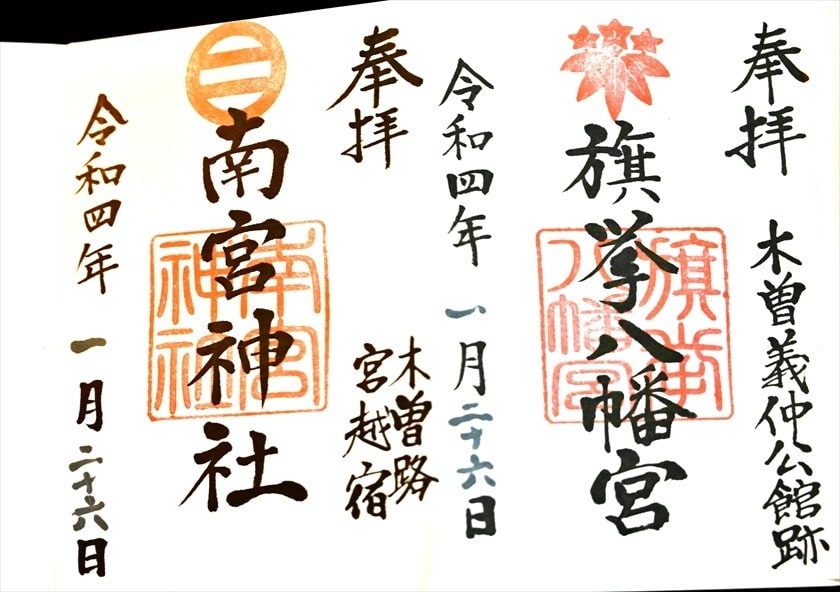 奉拝
木曽義仲公館跡
旗挙八幡宮
旗挙八幡宮
令和四年一月二十六日
奉拝
木曽路
宮越宿
南宮神社
南宮神社
令和四年一月二十六日